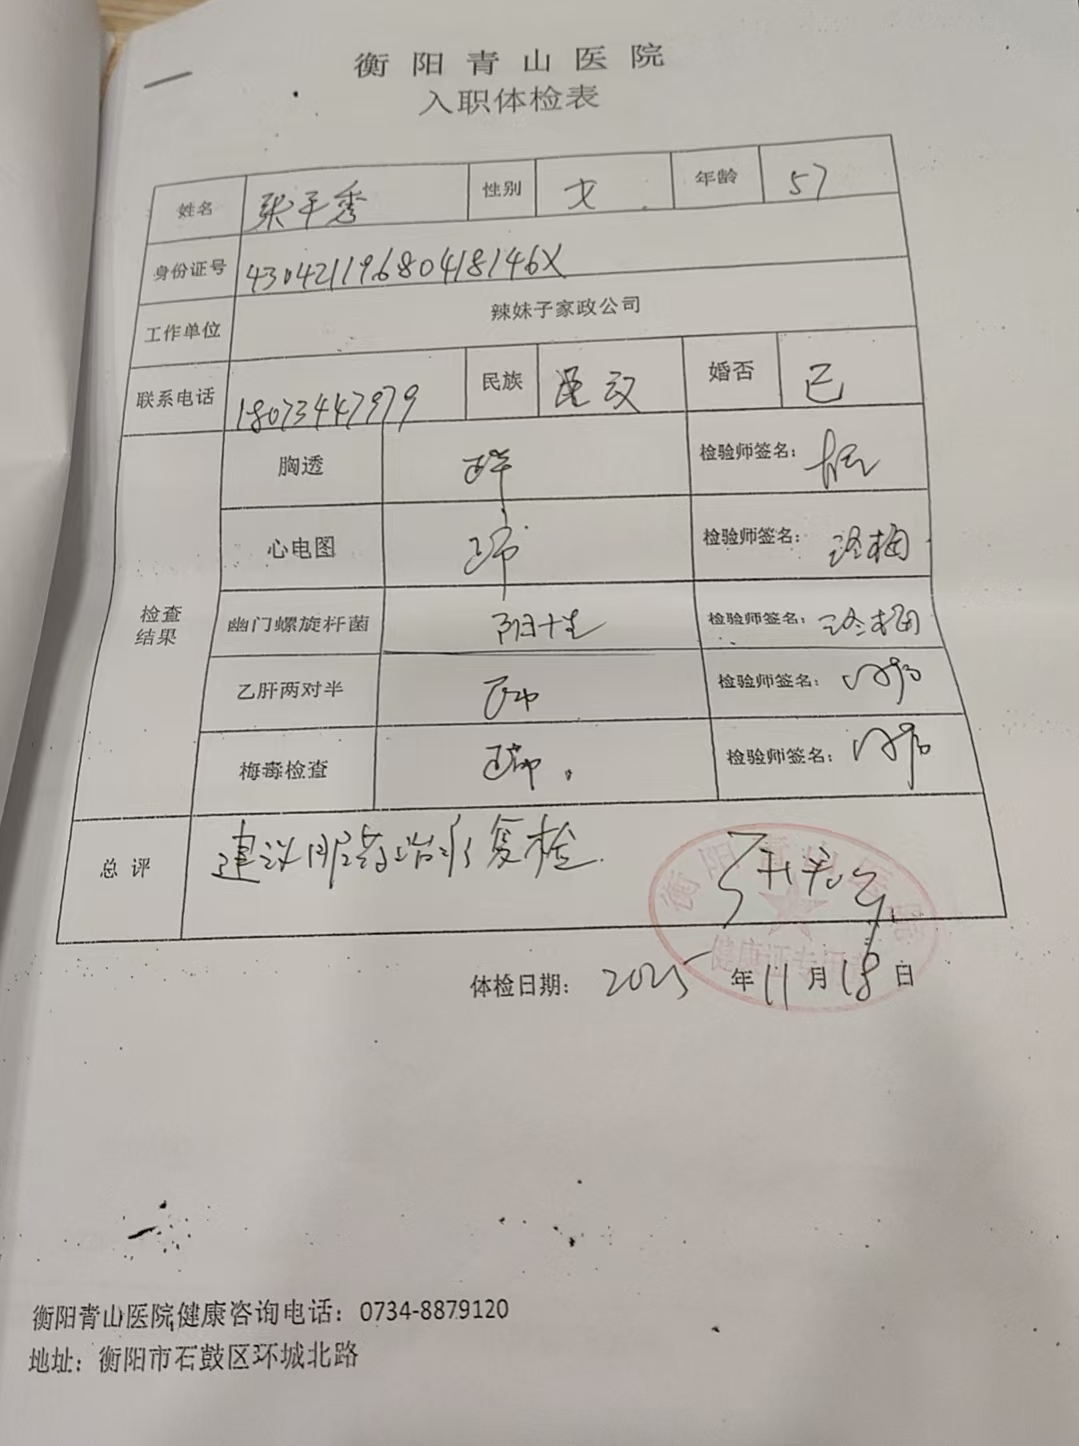 衡阳青山医院
入职体检表
姓名 张平秀 性别 女 年龄 57
身份证号 43042119680418146X
工作单位 辣妹子家政公司
联系电话 18073447979 民族 汉 婚否 已
检查结果
胸透 正常 检验师签名:
心电图 正常 检验师签名:
幽门螺旋杆菌 阳性 检验师签名:
乙肝两对半 检验师签名:
梅毒检查 检验师签名:
总评 建议服药治疗复检
衡阳青山医院
健康证专用
体检日期: 2025年11月18日
衡阳青山医院健康咨询电话: 0734-8879120
地址: 衡阳市石鼓区环城北路